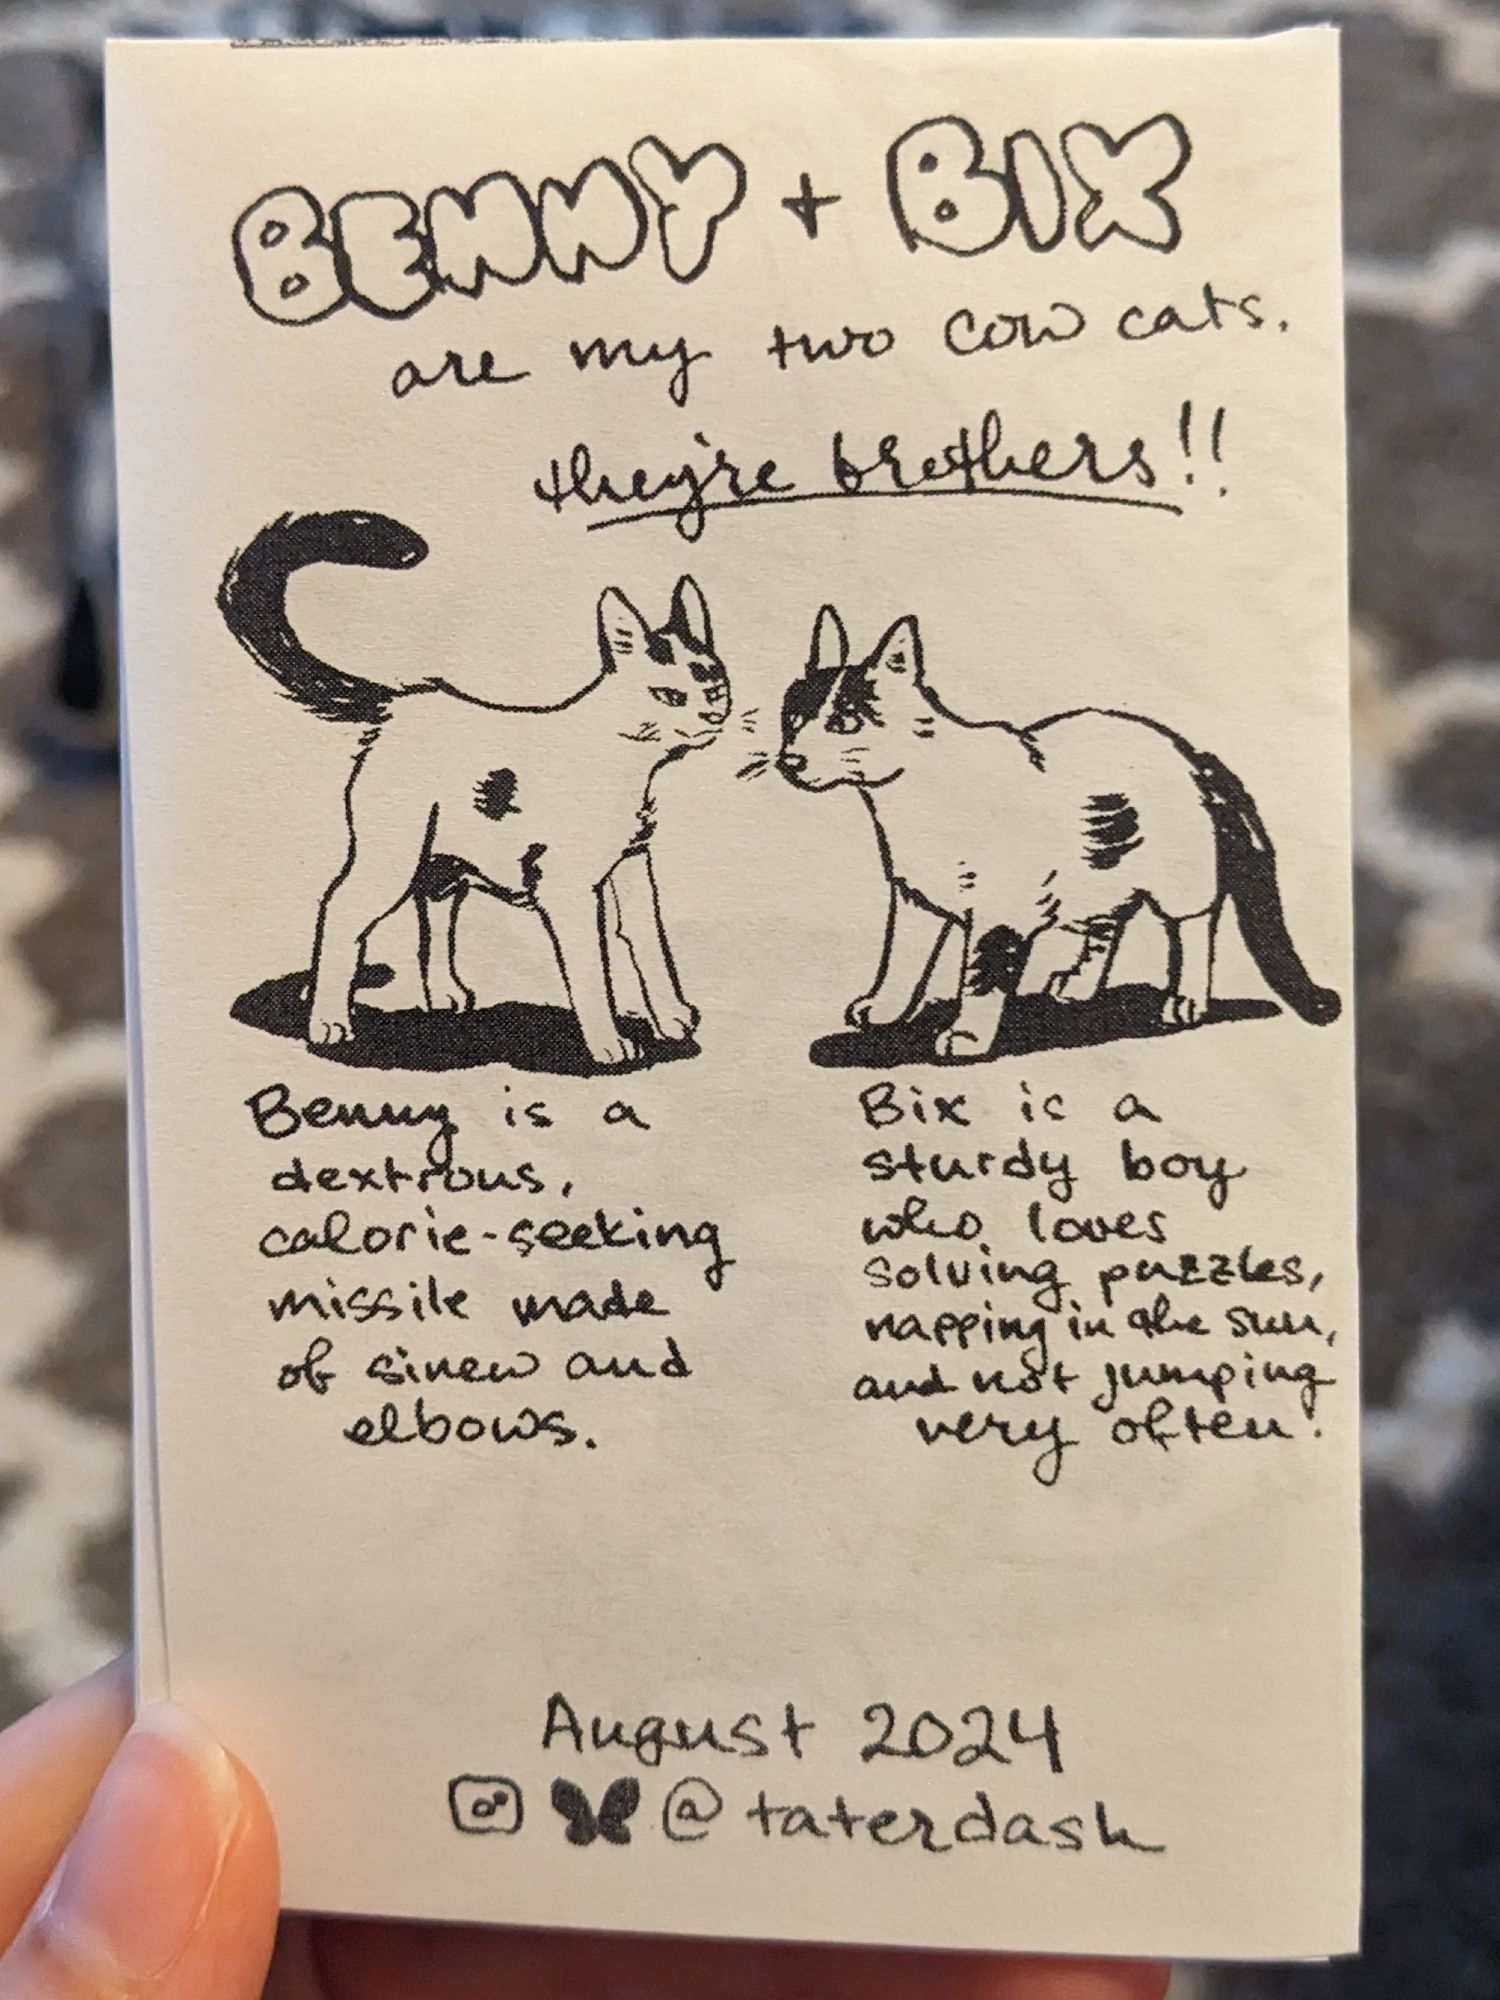 BENNY + BIX
are my two cow cats.
they're brothers!!
Benny is a
dextrous,
calorie-seeking
missile made
of sinew and
elbows.
Bix is a
sturdy boy
who loves
solving puzzles,
napping in the sun,
and not jumping
very often!
August 2024
@taterdash